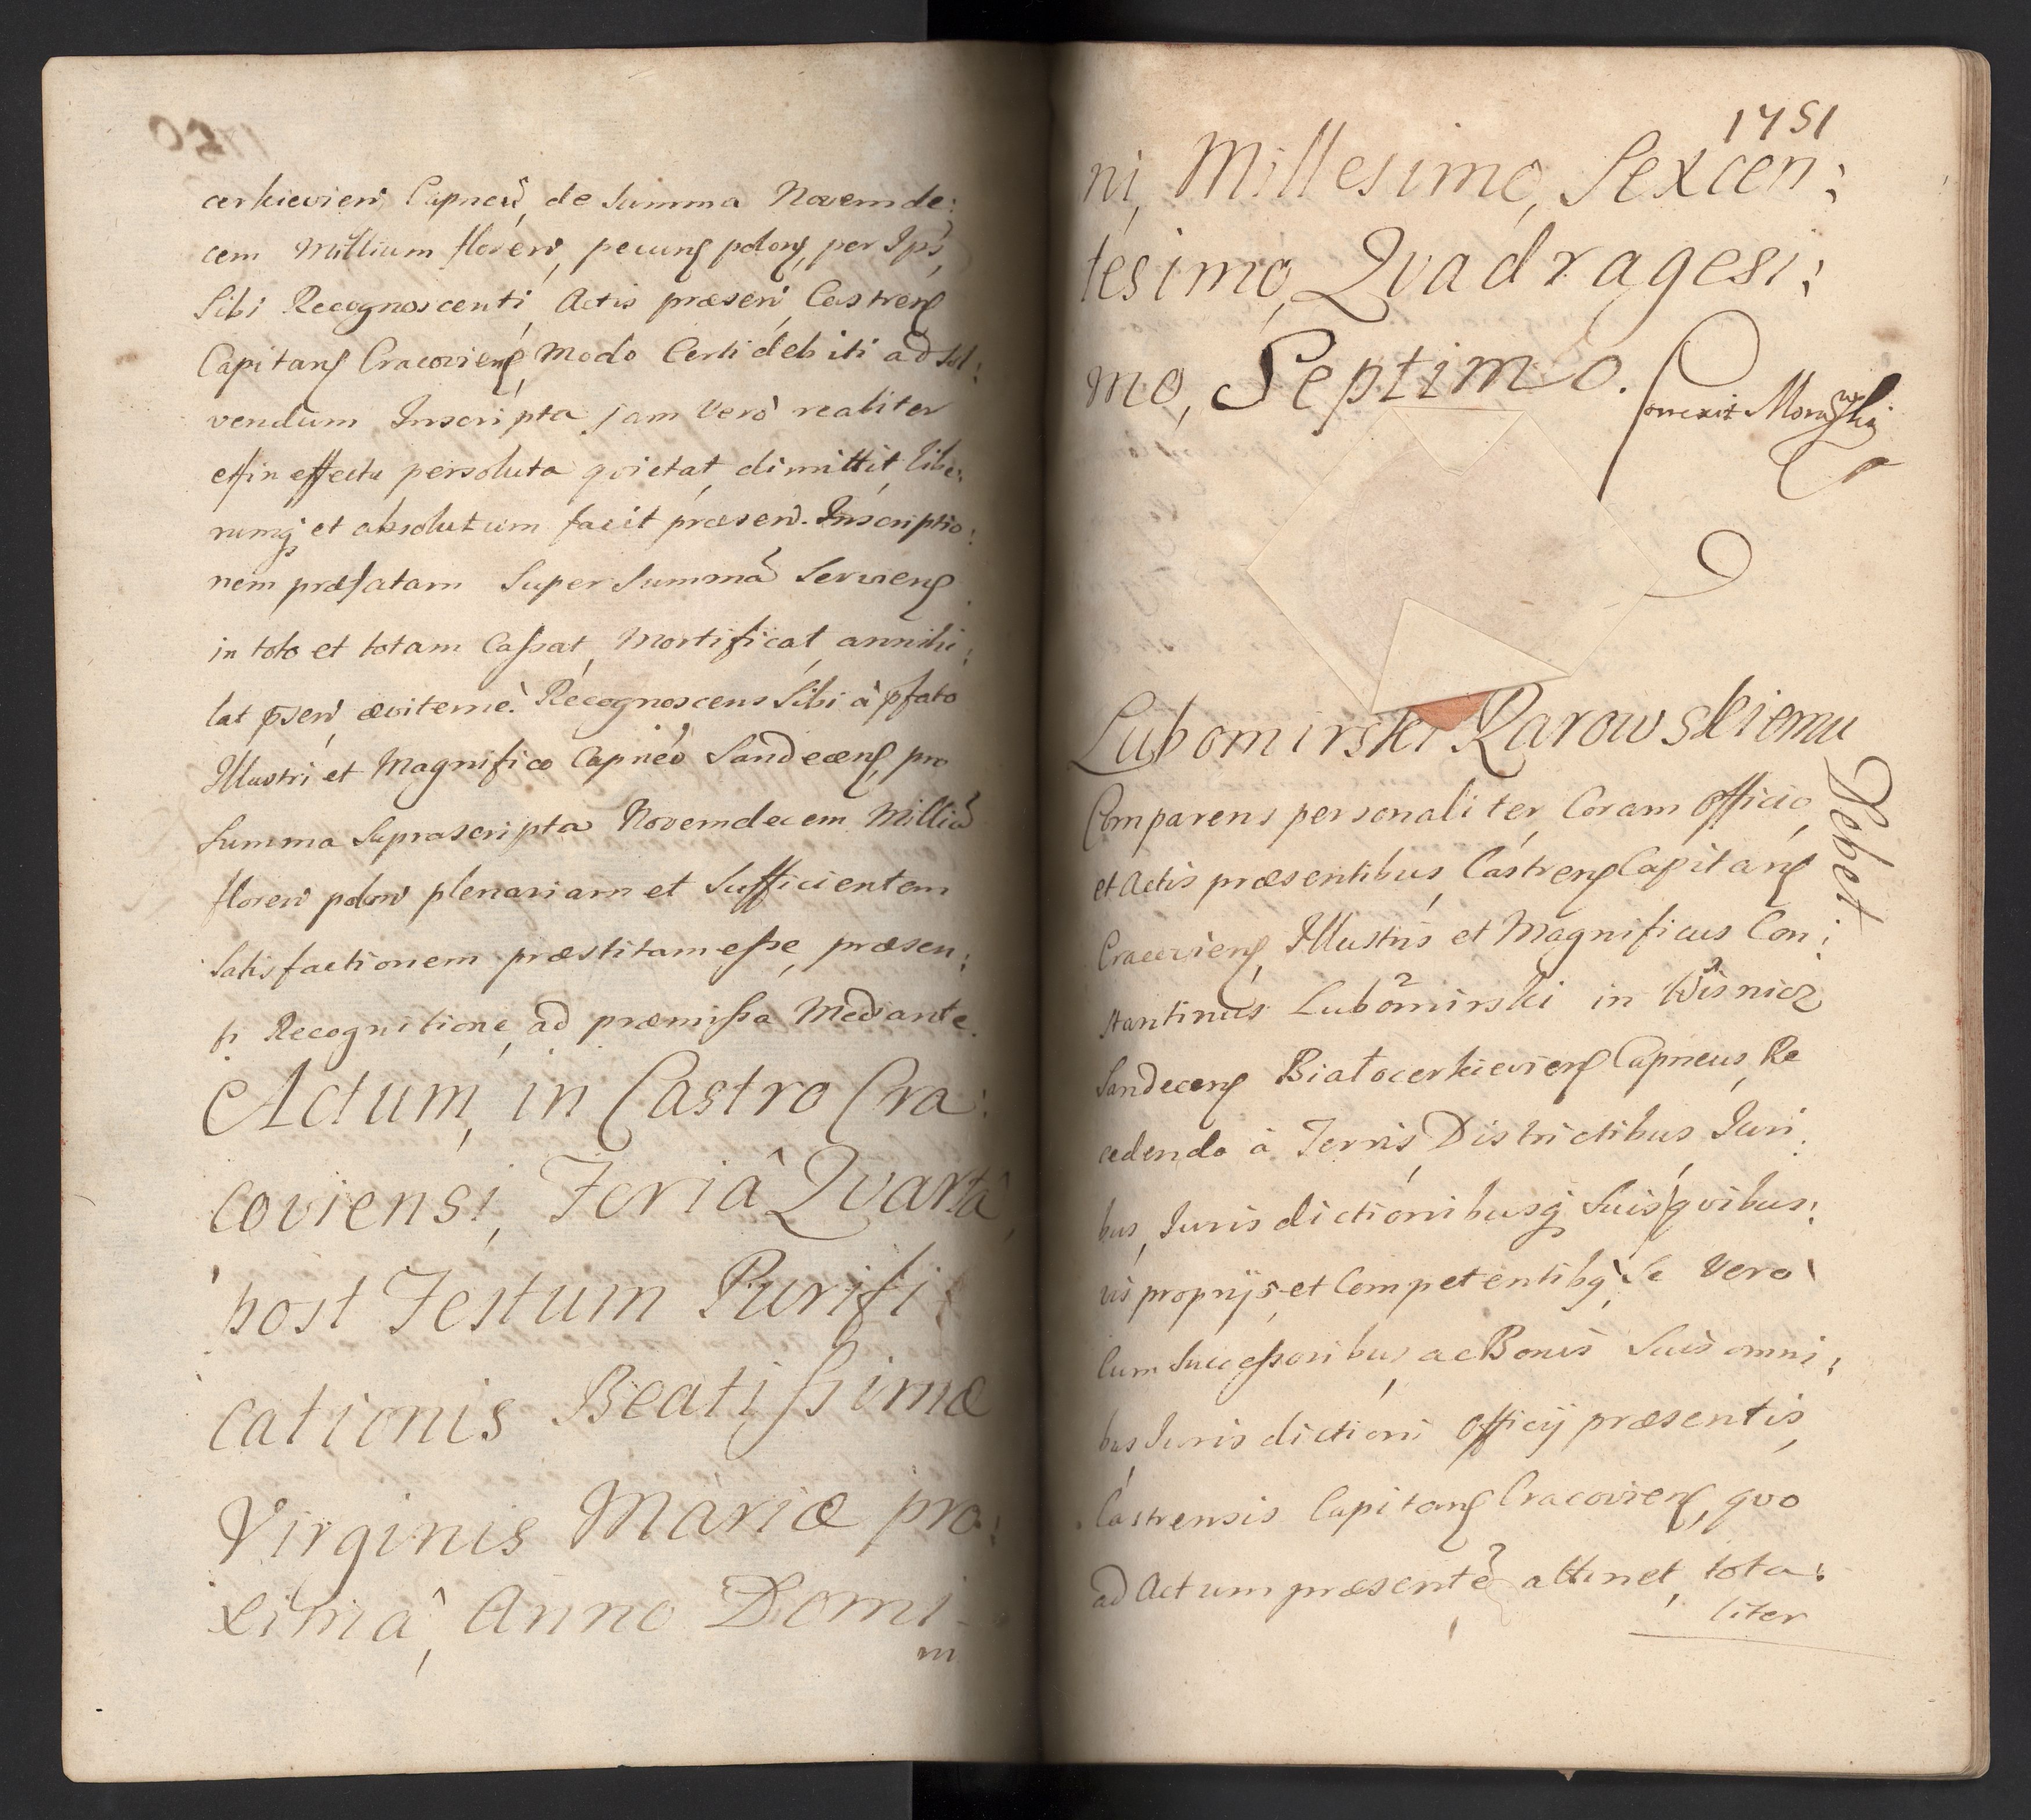 cerkievien, Capneū, de Summa Novemde:
cem Millium floren, pecun polon, per Ips,
Sibi Recognoscenti, Actis præsen, Castren
Capitan Cracovien, Modo Certi debiti ad sol:
vendum Inscripta, jam Verò realiter
et in effectu persoluta qvietat, dimittit, libe:
rumq et absolutum facit præsen. Inscriptio:
nem præfatam Super Summā Servien
in toto et totam Cassat, Mortificat, annihi:
lat p̄sen, æviternè. Recognoscens Sibi à pfato
Illustri et Magnifico Capneo Sandecen, pro
Summa Suprascripta Novemdecem Milliū
floren polon plenariam et Sufficientem
Satisfactionem præstitam esse, præsen:
ti Recognitione, ad præmissa Mediante.
Actum, in Castro Cra:
coviensi, Feriâ Qvartâ,
post Festum Purifi:
cationis Beatissimæ
Virginis Mariæ pro:
ximâ, Anno Domi-
ni
1751
ni, Millesimo, Sexcen:
tesimo, Qvadragesi:
mo, Septimo.
Correxit
Lubomirski Karowskiemu
Debet
Comparens personaliter, Coram Officio,
et Actis præsentibus, Castren Capitan
Cracovien, Illustris et Magnificus Con:
stantinus Lubomirski in Wisnicz
Sandecen Białocerkievien Capneus, Re
cedendo à Terris, Districtibus, Juri:
bus, Jurisdictionibusq Suis, qvibus:
vis proprijs, et Competentibq, Se Verò
Cum Successoribus, ac Bonis Suis omni:
bus, Jurisdictioni Officij præsentis,
Castrensis Capitan Cracovien, qvo
ad Actum præsentē attinet, tota:
liter